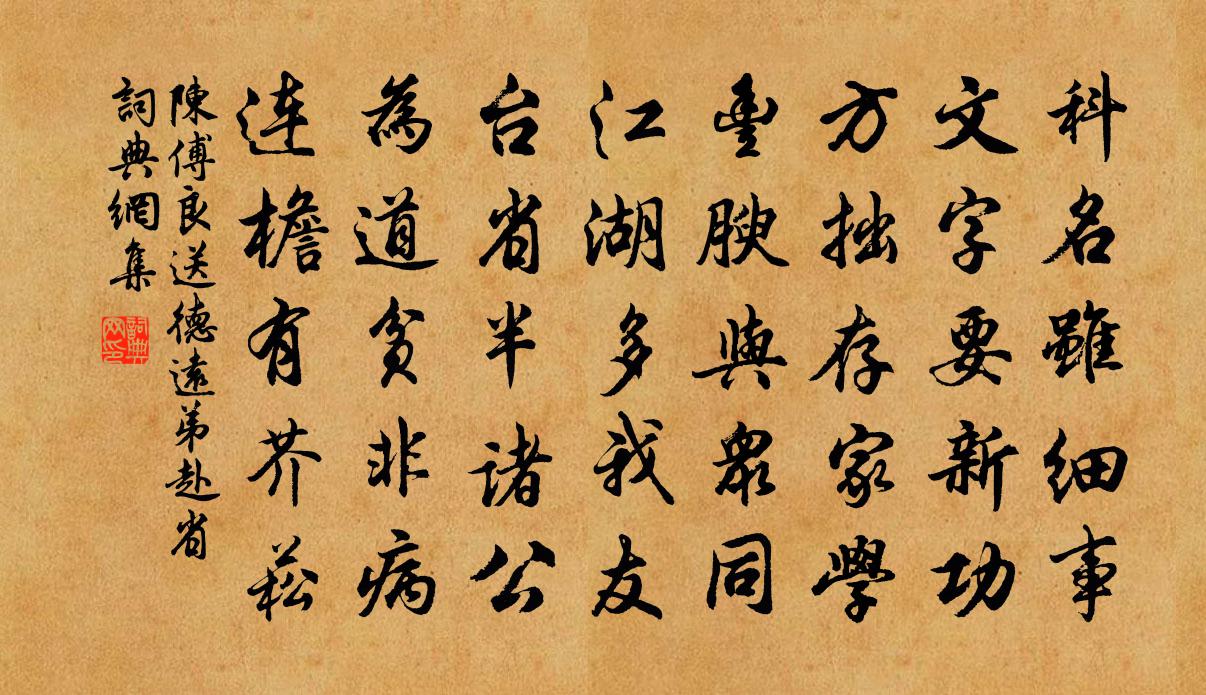 科名雖細事
文字要新功
方拙存家學
豐腴與眾同
江湖多我友
台省半諸公
為道貧非病
連檐有芥菘
陳傅良送德遠弟赴省
詞典網集
詞典网印